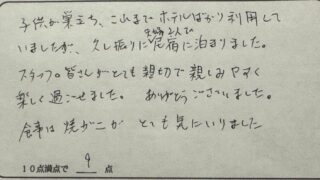 子供が巣立ち、これまでホテルばかり利用して
いましたが、久し振りに夫婦2人で民宿に泊まりました。
スタッフの皆さんがとても親切で親しみやすく
楽しく過ごせました。ありがとうございました。
食事は焼がにがとても気にいりました
10点満点で 9 点